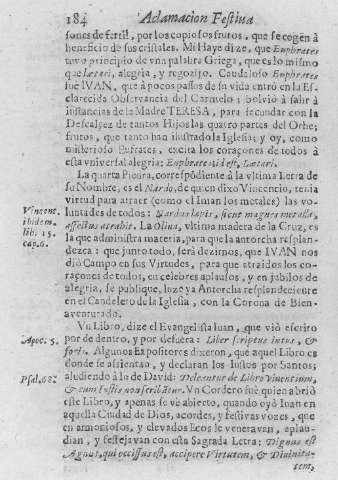 184 Aclamacion Festiua
sones de fertil, por los copiosos frutos, que se cogen à
beneficio de sus cristales. Mi Haye dize, que Euphrates
tuvo principio de vna palabra Griega, que es lo mismo
que Lætari, alegria, y regozijo. Caudaloso Euphrates
fuè IVAN, que à pocos passos de su vida entrò en la Es-
clarecida Observancia del Carmelo; bolviò à salir à
instancias de la Madre TERESA, para fecundar con la
Descalçez de tantos Hijos las quatro partes del Orbe;
frutos, que tanto han ilustrado la Iglesia; y oy, como
misterioso Eufrates, excita los coraçones de todos à
esta vniversal alegria: Euphrates id est, Lætari.
La quarta Piedra, correspõdiente à la vltima Letra de
su Nombre, es el Nardo, de quien dixo Vincencio, tenia
virtud para atraer (como el Iman los metales) las vo-
luntades de todos: Nardus lapis, sicut magnes metalla,
affectus atrahit. La Oliua, vltima madera de la Cruz, es
la que administra materia, para que la antorcha resplan-
dezca: que junto todo, serà dezirnos, que IVAN nos
diò Campo en sus Virtudes, para que atraidos los co-
raçones de todos, en celebres aplausos, y en jubilos de
alegria, se publique, luze ya Antorcha resplandeciente
en el Candelero de la Iglesia, con la Corona de Bien-
aventurado.
Vn Libro, dize el Evangelista Iuan, que viò escrito
por de dentro, y por defuera: Liber scriptus intus, &
foris. Algunos Expositores dixeron, que aquel Libro es
donde se assientan, y declaran los Iustos por Santos;
aludiendo à lo de David: Deleantur de Libro Viventium,
& cum Iustis non scribãtur. Vn Cordero fuè quien abriò
este Libro, y apenas se vè abierto, quando oyò Iuan en
aquella Ciudad de Dios, acordes, y festivas vozes, que
en armoniosos, y elevados Ecos le veneravan, aplau-
dian, y festejavan con esta Sagrada Letra: Dignus est
Agnus, qui occissus est, accipere Virtutem, & Divinita-
tem,
Vincent.
ibidem,
lib. 15.
cap. 6.
Apoc. 5.
Psal. 68.